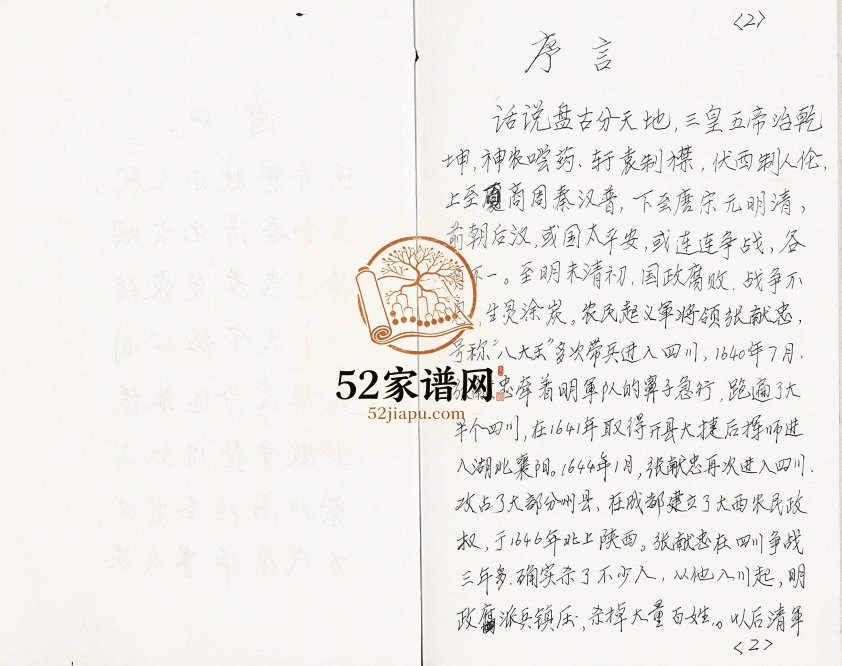 <2>
序言
话说盘古分天地,三皇五帝治乾
坤,神农嚐药、轩袁制襟,伏西制人伦,
上至夏商周秦汉普,下至唐宋元明清,
前朝后汉,或国太平安,或连连争战,各
不一。至明末清初,国政腐败.战争不
,生灵涂炭。农民起义军将领张献忠,
号称“八大王”多次带兵进入四川,1640年7月,
张献忠牵着明軍队的鼻子急行,跑遍了大
半个四川,在1641年取得开县大捷后挥师进
入湖北襄阳。1644年1月,张献忠再次进入四川.
攻占了大部分州县,在成都建立了大西农民政
权,于1646年北上陕西。张献忠在四川争战
三年多.确实杀了不少人,从他入川起,明
政府派兵镇压,杀掉大量百姓。以后清军
<2>
52家谱网
52jiapu.com